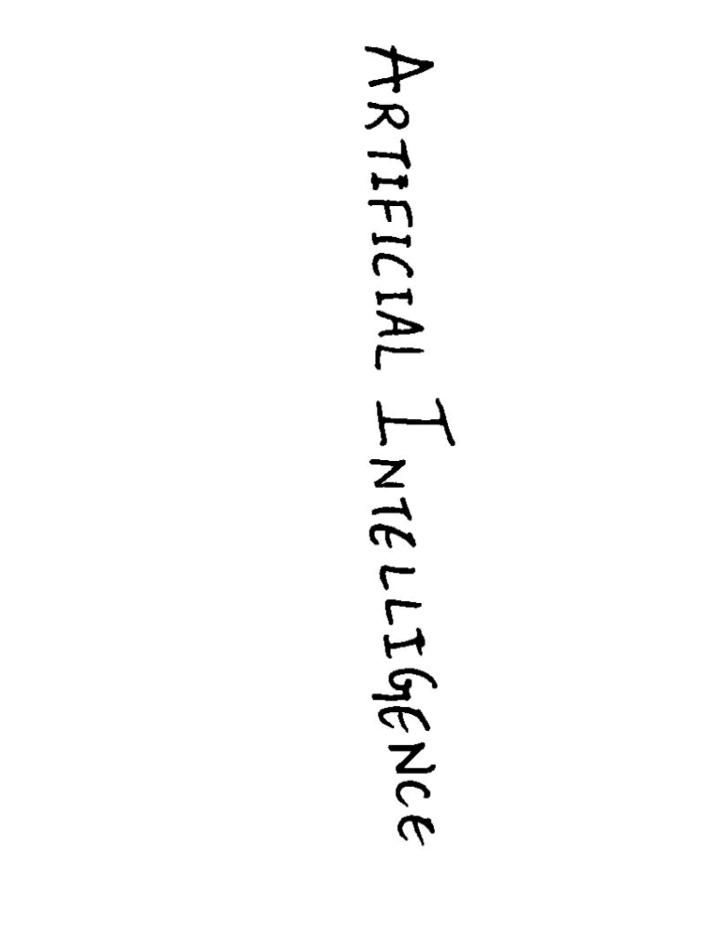 ARTIFICIAL INTELLIGENCE